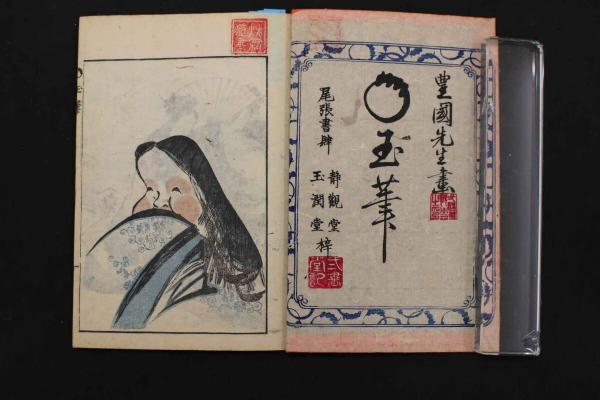 豊國先生畫
玉筆
尾張書肆
靜觀堂
玉潤堂
梓